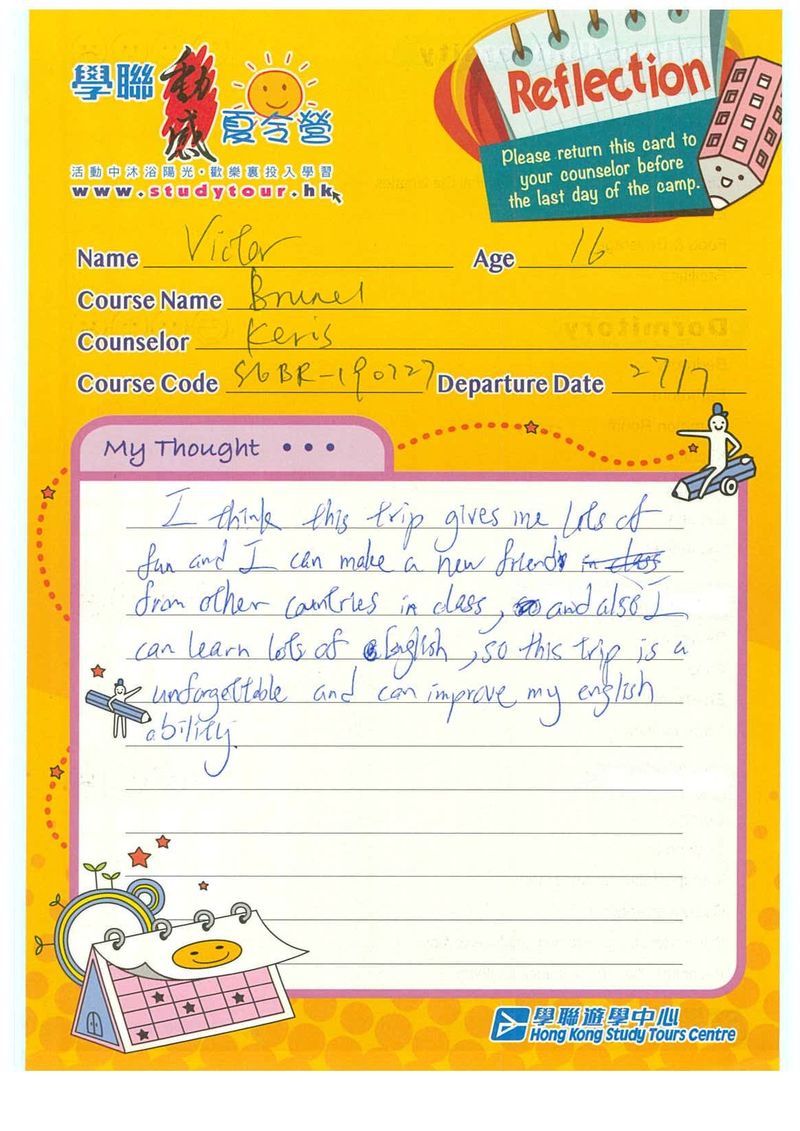 學聯 動感 夏令營
活動中沐浴陽光·歡樂裏投入學習
www.studytour.hk
Reflection
Please return this card to
your counselor before
the last day of the camp.
Name Victor Age 16
Course Name Brunel
Counselor Keris
Course Code SGBR-190727 Departure Date 27/7
My Thought •••
I think this trip gives me lots of
fun and I can make a new friend in class
from other countries in class, so and also I
can learn lots of English, so this trip is a
unforgettable and can improve my english
ability.
學聯遊學中心
Hong Kong Study Tours Centre